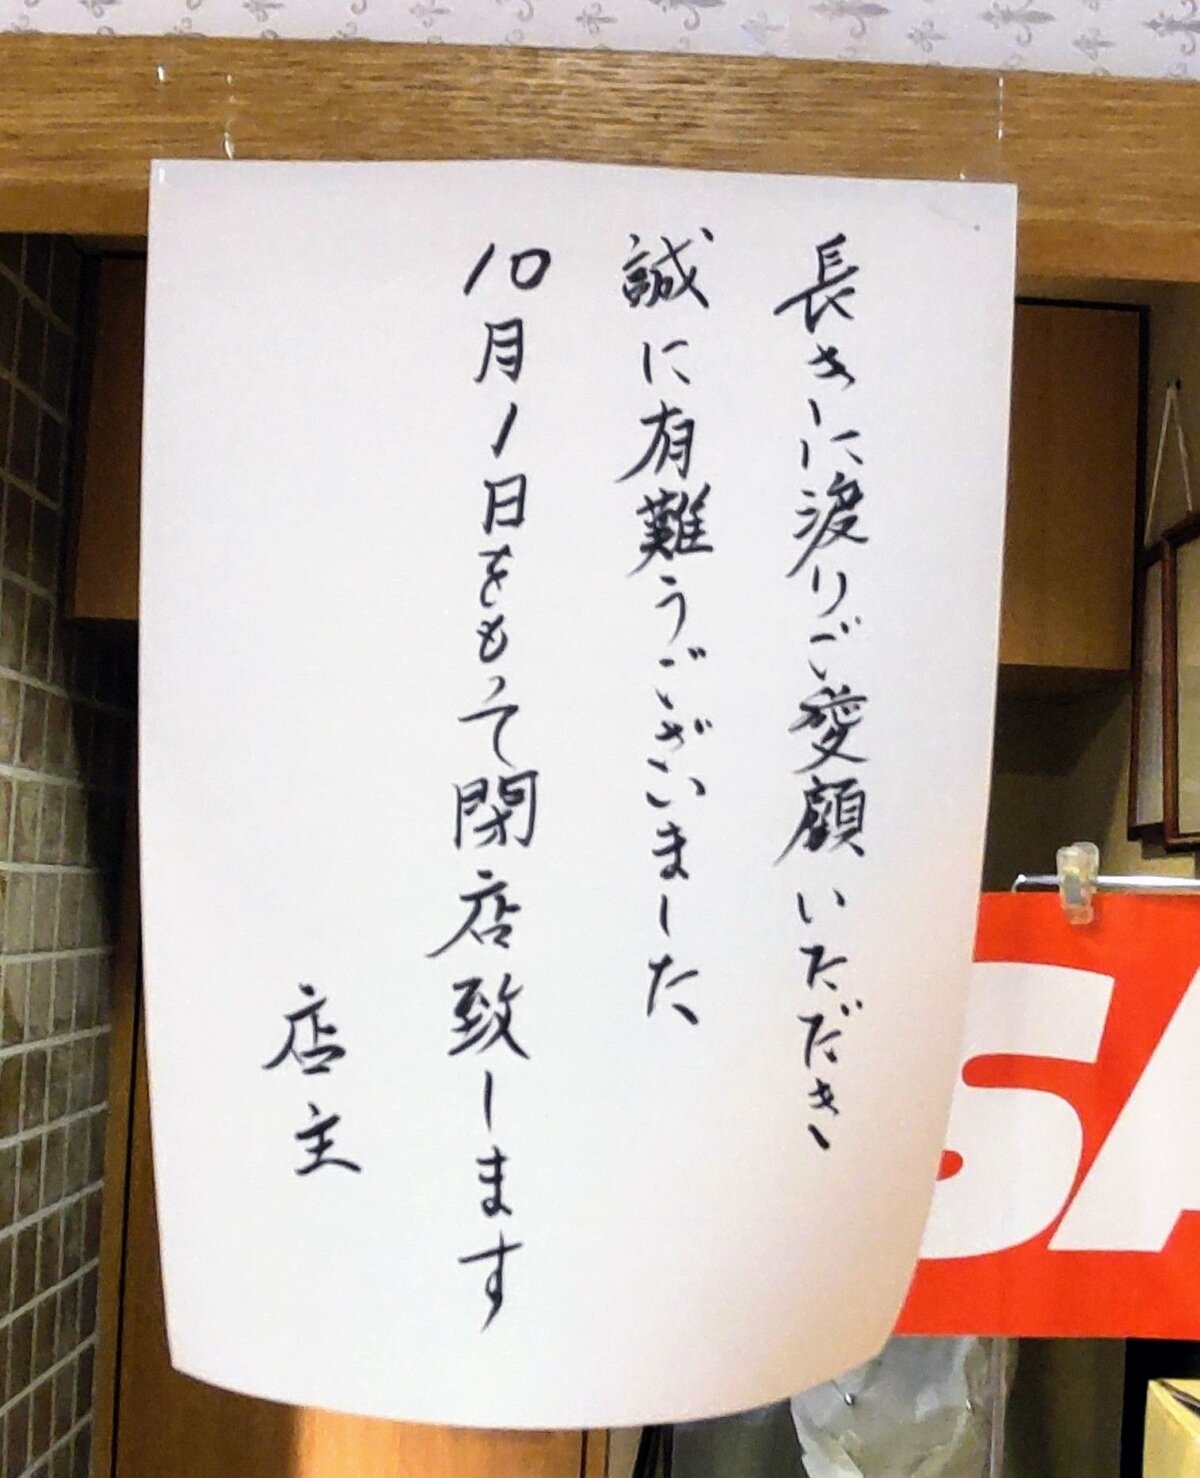 長きに渡りご愛顧いただき
誠に有難うございました
10月1日をもって閉店致します
店主
SA